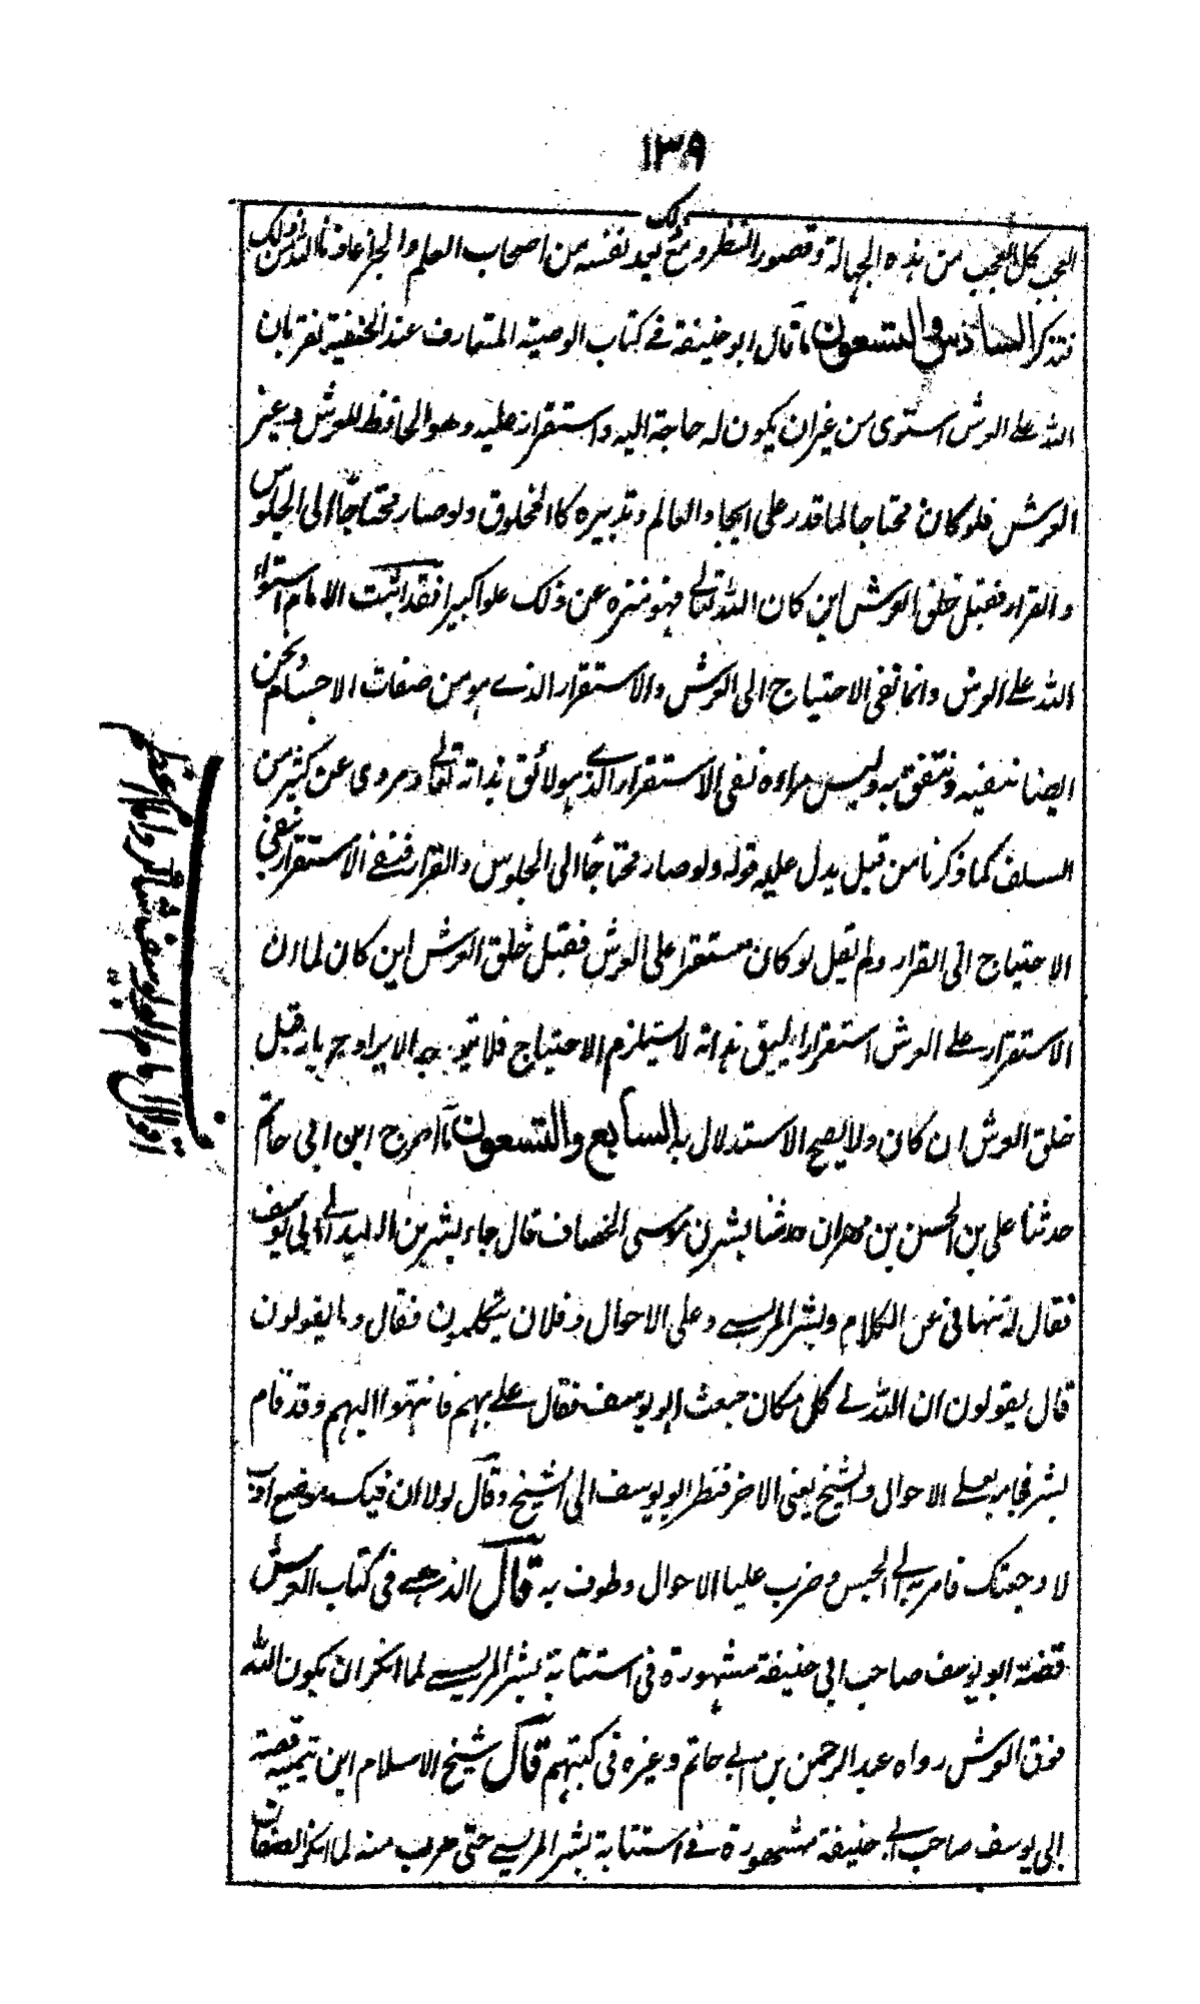 ١٣٩
العجب كل العجب من هذه الجهالة وقصور النظر ومع ذلك يعد نفسه من اصحاب العلم والحجر اعاذنا الله من ذلك
فتذكر السادس والتسعون ما قال ابو حنيفة في كتاب الوصية المتعارف عند الحنفية نقر بان
الله على العرش استوى من غير ان يكون له حاجة اليه واستقرار عليه وهو الحافظ للعرش وغير
العرش فلو كان محتاجا لما قدر على ايجاد العالم وتدبيره كالمخلوق ولو صار محتاجا الى الجلوس
والقرار فقبل خلق العرش اين كان الله تعالى فهو منزه عن ذلك علوا كبيرا فقد اثبت الامام استواء
الله على العرش وانما نفى الاحتياج الى العرش والاستقرار الذي هو من صفات الاجسام ونحن
ايضا ننفيه ونتفق به وليس مراده نفى الاستقرار الذي هو لائق بذاته تعالى ومروى عن كثير من
السلف كما ذكرنا من قبل يدل عليه قوله ولو صار محتاجا الى الجلوس والقرار فنفى الاستقرار بنفى
الاحتياج الى القرار ولم يقل لو كان مستقرا على العرش فقبل خلق العرش اين كان لما ان
الاستقرار على العرش استقرارا يليق بذاته لا يستلزم الاحتياج فلا يتوجه الايراد ح بانه قبل
خلق العرش اين كان ولا يصح الاستدلال به السابع والتسعون ما اخرج ابن ابي حاتم
حدثنا على بن الحسين بن مهران حدثنا بشر بن موسى الخصاف قال جاء بشر بن الوليد الى ابي يوسف
فقال له تنهانى عن الكلام وبشر المريسى وعلى الاحوال وفلان يتكلمون فقال وما يقولون
قال يقولون ان الله فى كل مكان فبعث ابو يوسف فقال على بهم فانتهوا اليهم وقد قام
بشر فجئ بعلى الاحوال والشيخ يعنى الاخر فنظر ابو يوسف الى الشيخ وقال لولا ان فيك موضع ادب
لاوجعتك فامر به الى الحبس وضرب عليا الاحوال وطوف به قال الذهبى فى كتاب العرش
قصة ابو يوسف صاحب ابي حنيفة مشهورة فى استتابة بشر المريسى لما انكر ان يكون الله
فوق العرش رواه عبد الرحمن بن ابى حاتم وغيره فى كتبهم قال شيخ الاسلام ابن تيمية قصة
ابى يوسف صاحب ابى حنيفة مشهورة فى استتابة بشر المريسى حتى هرب منه لما انكر الصفات